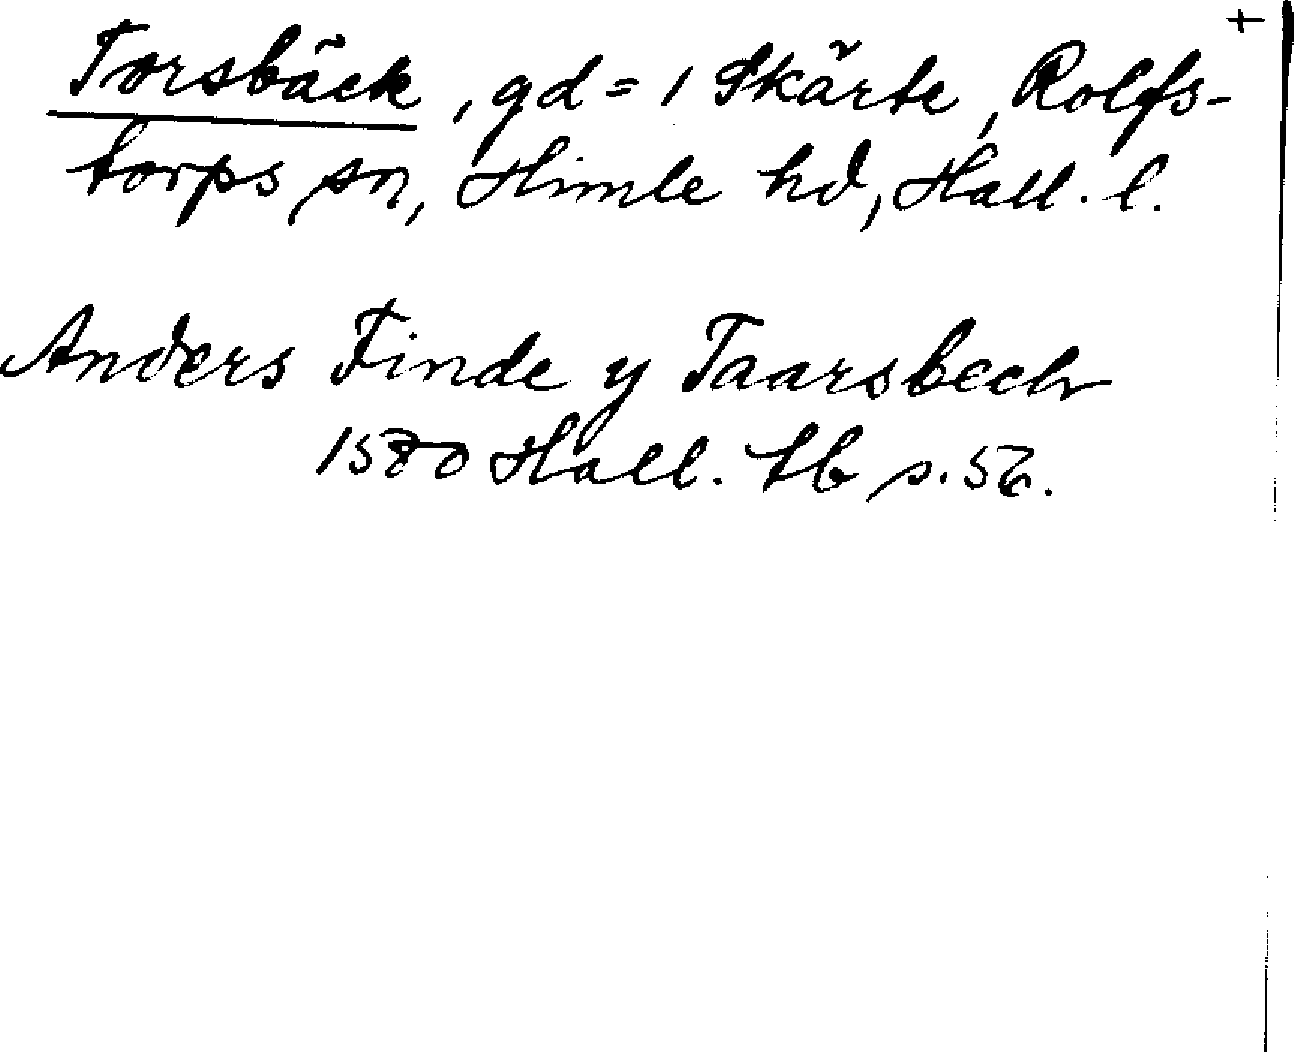 +
Torsbäck, gd = 1 Skärte, Rolfs-
torps sn, Himle hd, Hall. l.
Anders Finde y Taarsbech
1580 Hall. tb s. 56.